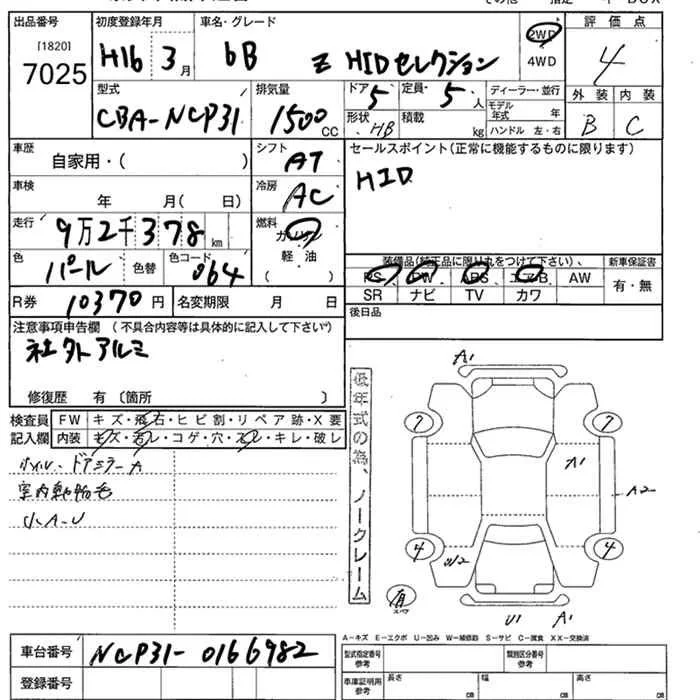 出品番号 初度登録年月 車名・グレード 2WD 評価点
[1820] H16 3月 bB Z HIDセレクション 4WD 4
7025
型式 排気量 ドア 定員 ディーラー・並行 外装 内装
CBA-NCP31 1500 CC 5 5人 モデル年式 年 B C
形状 HB 積載 kg ハンドル 左・右
車歴 自家用・( ) シフト AT セールスポイント(正常に機能するものに限ります)
車検 年 月(日) 冷房 AC HID
走行 9万2千378km 燃料 ガソリン
軽油
色 パール 色替 色コード 064 ( )
装備品(純正品に限り丸をつけて下さい)、 新車保証書
PS PW ABS エアB AW 有・無
SR ナビ TV カワ
R券 10370円 名変期限 月 日 後日品
注意事項申告欄 (不具合内容等は具体的に記入して下さい)
社外アルミ
修復歴 有 〔箇所 〕
検査員 FW キズ・飛石・ヒビ割・リペア跡・X要
記入欄 内装 キズ・汚レ・コゲ・穴・スレ・キレ・破レ
ドアミラーA
室内動物毛
小A-U
低年式の為、ノークレーム
A1
7 7
A1
A2
4 4
有
U1 A1
A-キズ E-エクボ U-凹み W-補修跡 S-サビ C-腐食 XX-交換済
車台番号 NCP31-0166982 型式指定番号 参考 類別区分番号 参考
登録番号 車庫証明用 参考 長さ cm 幅 cm 高さ cm